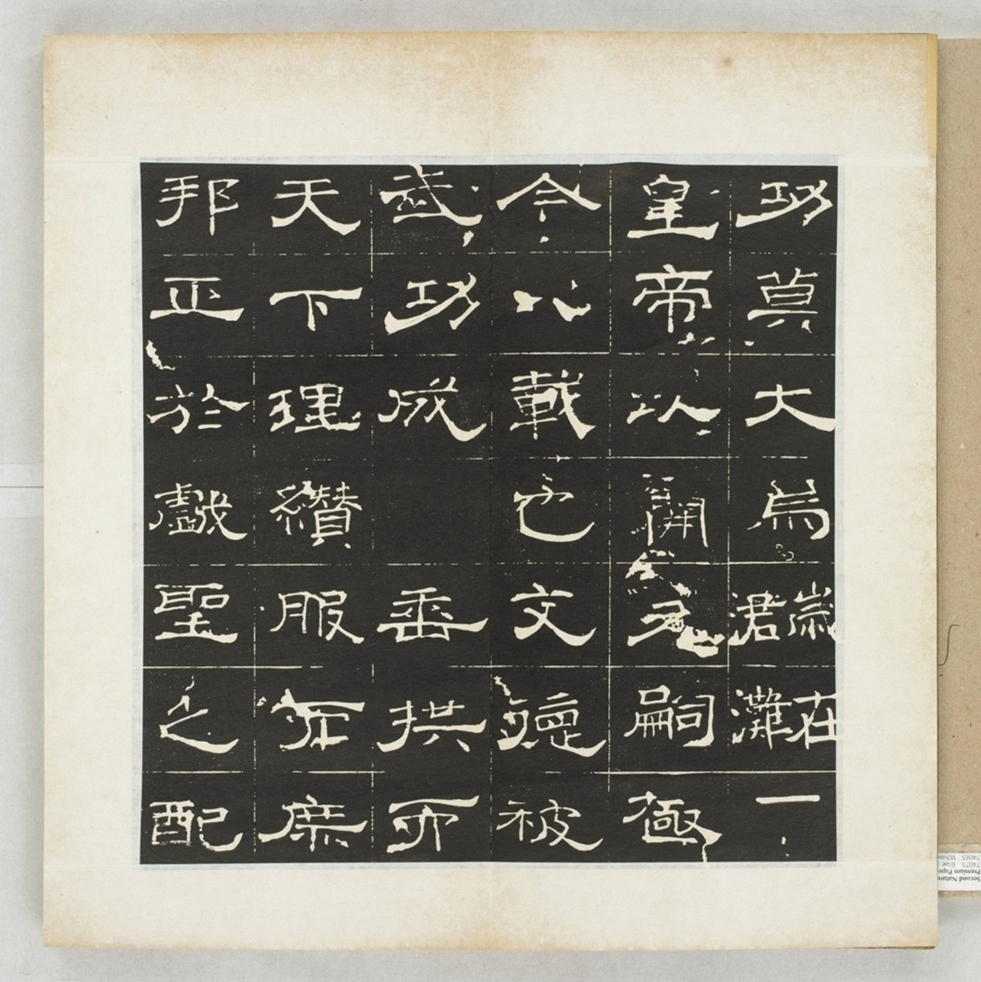 功莫大焉歲在涒灘一
皇帝以開元嗣極
今八載已文德被
武功成垂拱而
天下理纘服庶
邦正於戲聖之配
Second Nature
Premium Paper
74075 Blue
74085 White